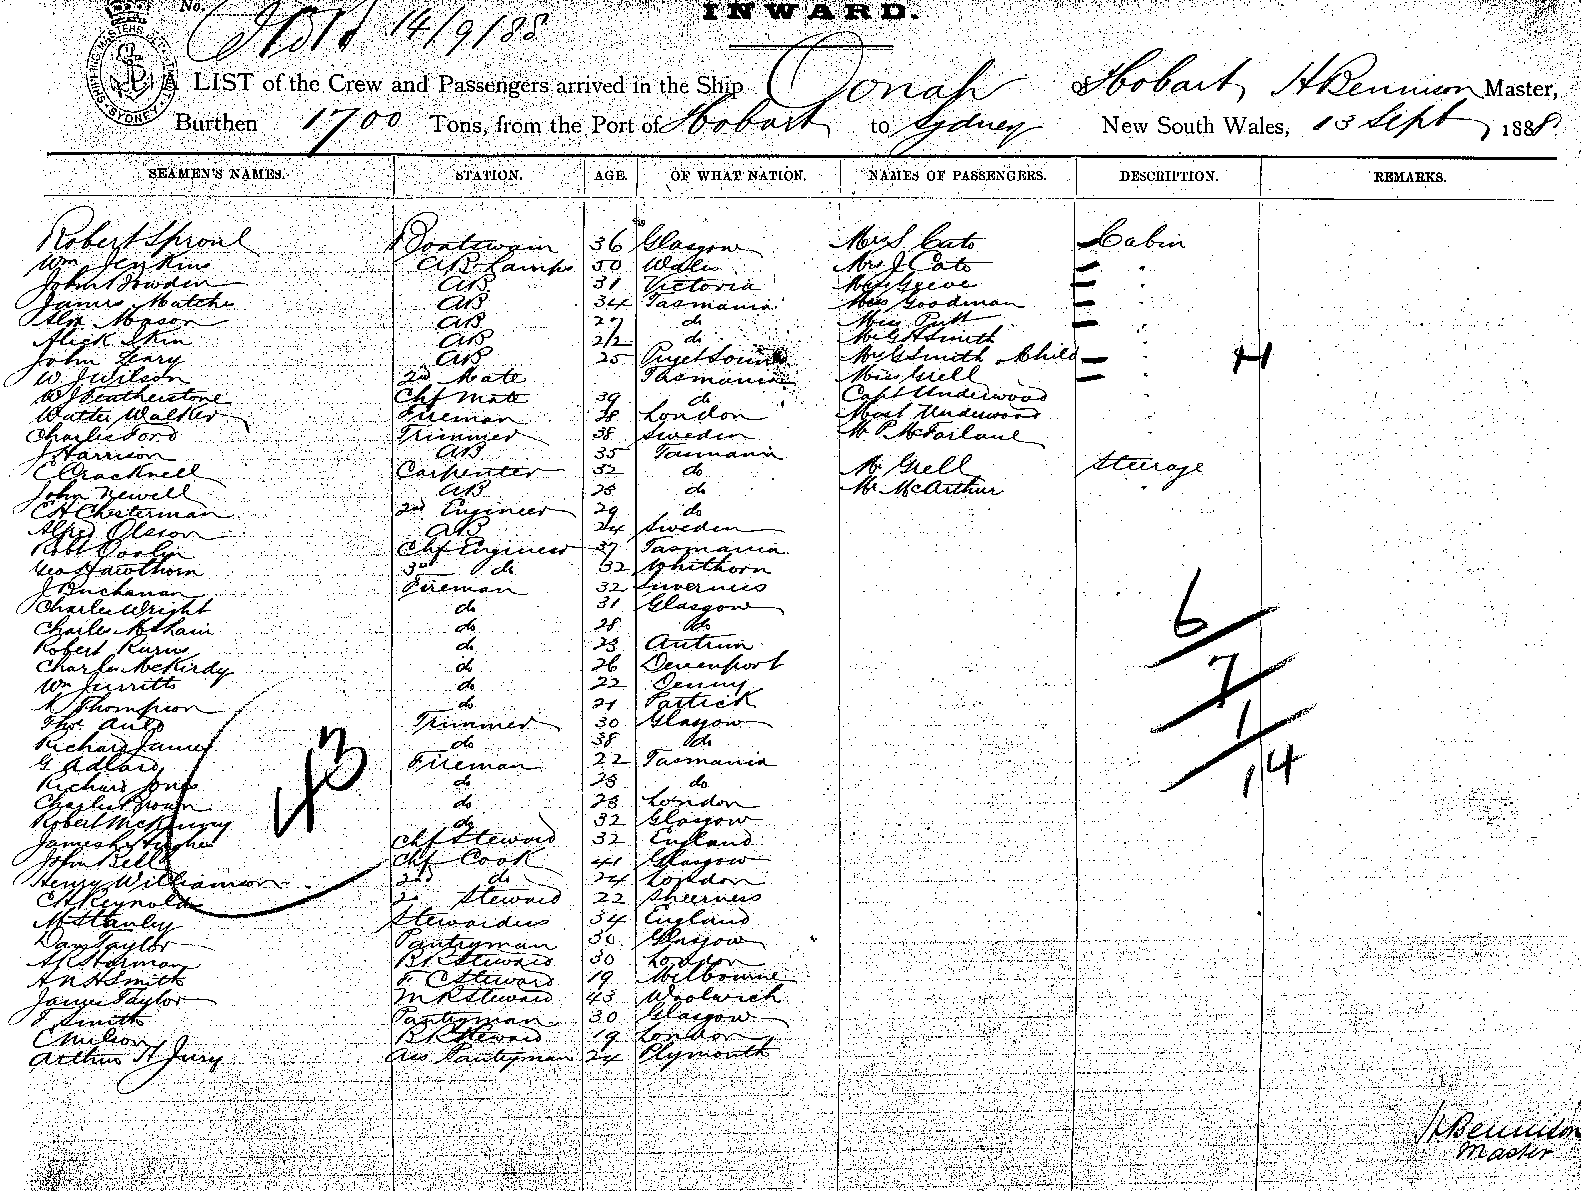 No.
INWARD.
14/9/88
LIST of the Crew and Passengers arrived in the Ship Oonah of Hobart, H Bennison Master,
Burthen 1700 Tons, from the Port of Hobart to Sydney New South Wales, 13 Sept, 1888.
SEAMEN'S NAMES. STATION. AGE. OF WHAT NATION. NAMES OF PASSENGERS. DESCRIPTION. REMARKS.
Robert Sproul Boatswain 36 Glasgow Mrs S. Cato Cabin
Wm Jenkins AB Lamps 50 Wales Mrs J Cato "
John Bowden AB 31 Victoria "
James AB 34 Tasmania Miss Goodman "
Alex Mason AB 27 do Miss "
Alick Skin AB 22 do Mr G H Smith "
John Leary AB 25 Puget Sound Mrs G Smith & Child "
W J Wilson 2nd Mate Tasmania Miss Grell "
W Featherstone Chf Mate 39 do Capt Underwood "
Walter Walker Fireman 28 London Mast Underwood "
Charles Ford Trimmer 38 Sweden Mr P McFarlane "
J Harrison AB 35 Tasmania
C Cracknell Carpenter 32 do Mr Grell Steerage
John Newell AB 28 do Mr McArthur "
C H Chesterman 2nd Engineer 29 do
Alfred Olsson AB 24 Sweden
Robt Chf Engineer 37 Tasmania
Geo Hawthorn 3rd do 32 Whithorn
J Buchanan Fireman 32 Inverness
Charles Wright do 31 Glasgow
Charles McShain do 28 do
Robert do 23 Antrim
Charles McKirdy do 26 Devenport
Wm Jurritts do 22 Denny
N Thompson do 21 Partick
Thos Auld Trimmer 30 Glasgow
Richard James do 38 do
G Adlard Fireman 22 Tasmania
Richard Jones do 28 do
Charles Brown do 28 London
Robert do 32 Glasgow
James Hughes Chf Steward 32 England
John Bell Chf Cook 41 Glasgow
Henry Williamson 2nd do 24 London
C H Reynolds 2nd Steward 22 Sheerness
M Stanley Stewardess 34 England
Dan Taylor Pantryman 30 Glasgow
Harman BR Steward 30 London
A N H Smith F C Steward 19 Melbourne
James Taylor M R Steward 43 Woolwich
T Smith Pantryman 30 Glasgow
C Milson BR Steward 19 London
Arthur H Jury Ass Pantryman 24 Plymouth
43
6
7
1
14
H Bennison
Master